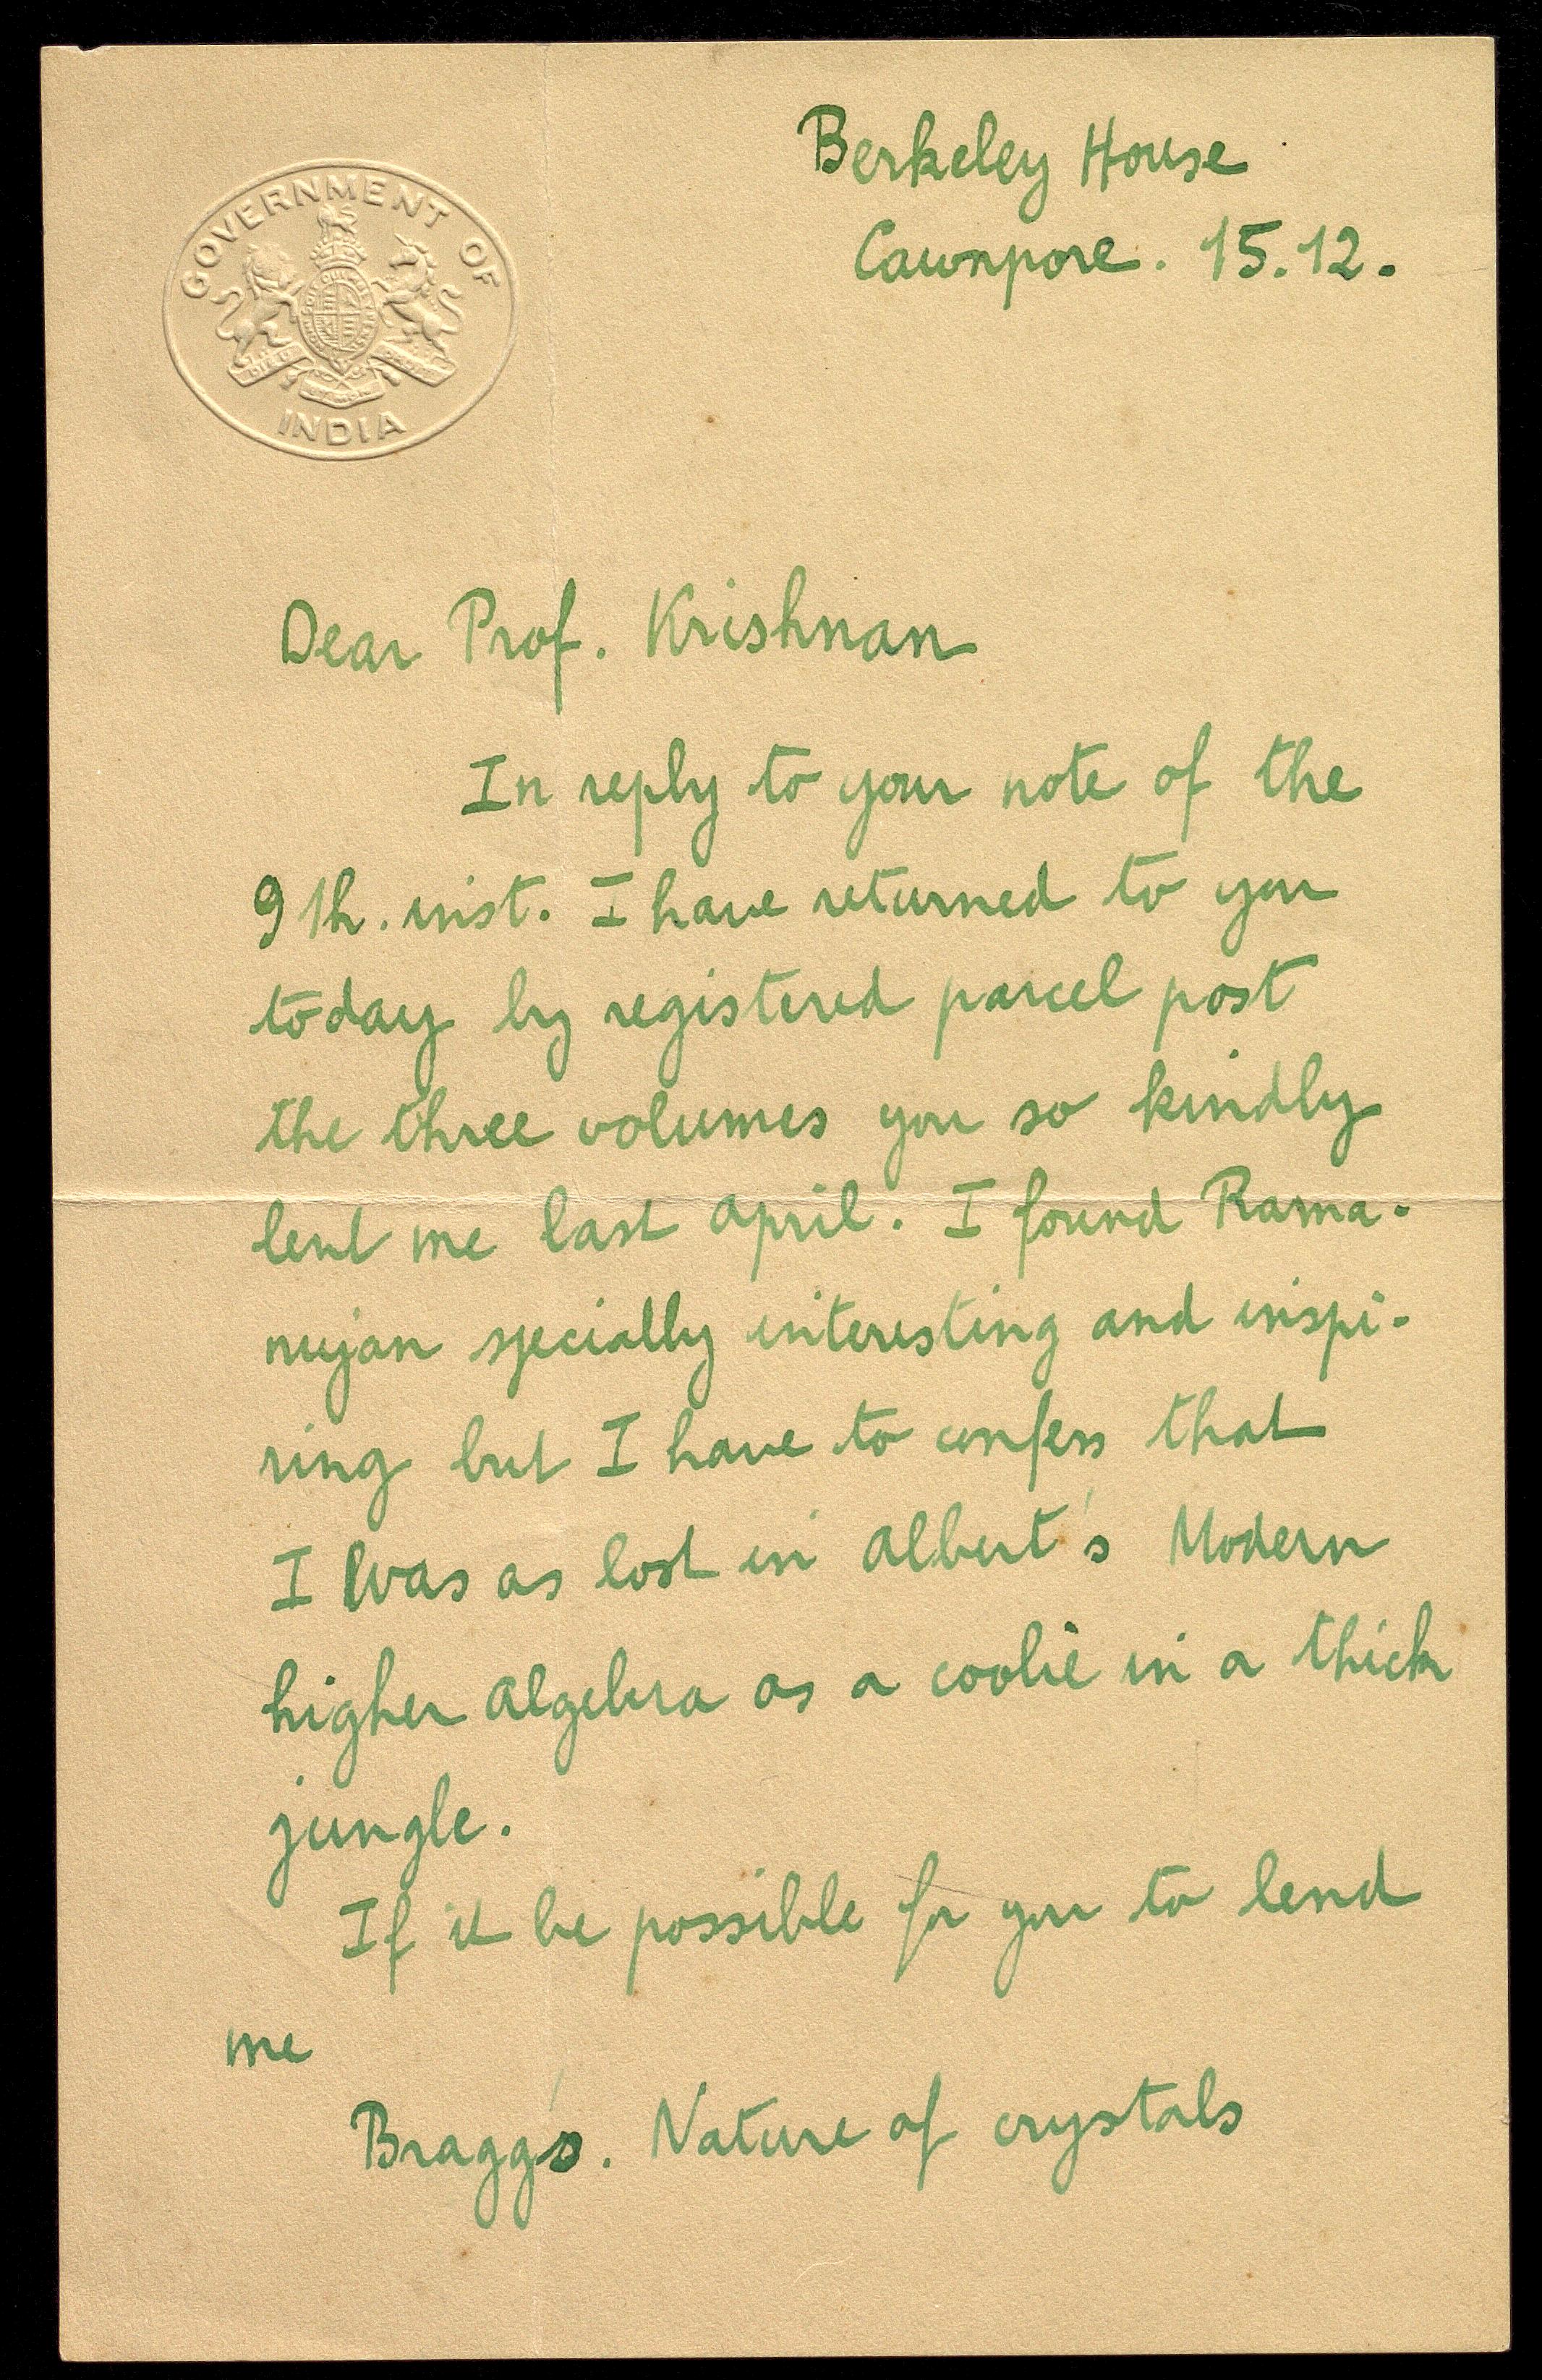 GOVERNMENT OF
INDIA
Berkeley House
Cawnpore. 15.12.
Dear Prof. Krishnan
In reply to your note of the
9th. inst. I have returned to you
today by registered parcel post
the three volumes you so kindly
lent me last April. I found Rama-
nujan specially interesting and inspi-
ring but I have to confess that
I was as lost in Albert's Modern
higher Algebra as a coolie in a thick
jungle.
If it be possible for you to lend
me
Bragg's. Nature of crystals